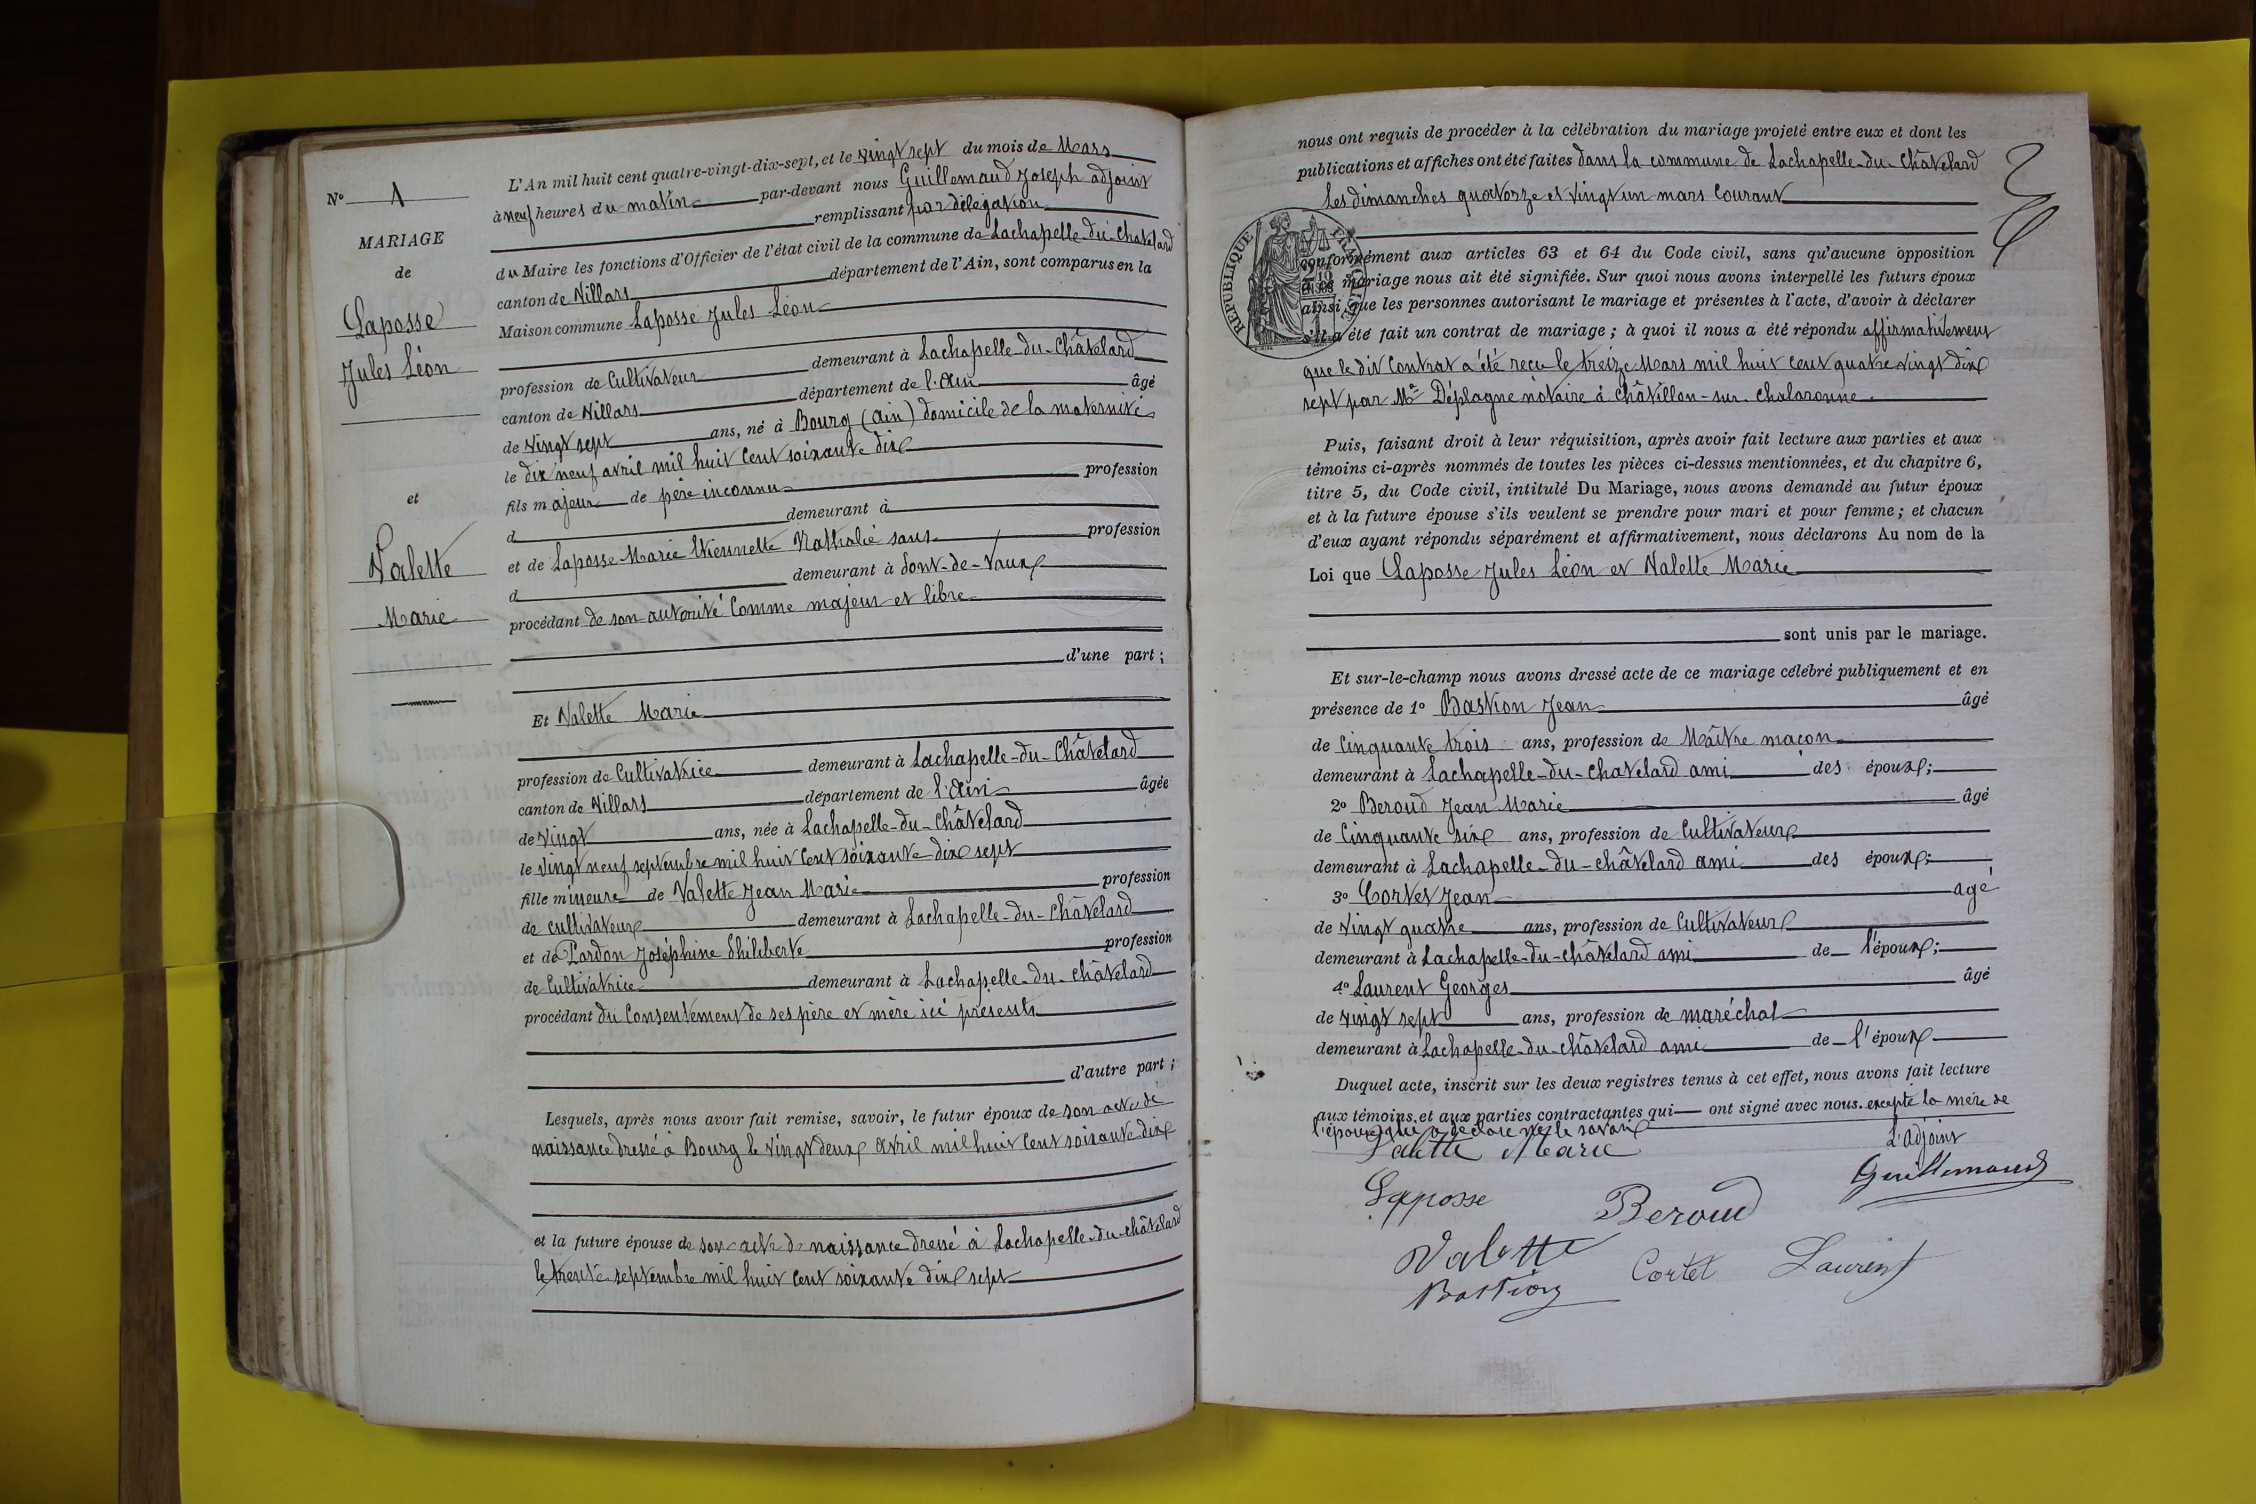 N° 1
MARIAGE
de
Laposse
Jules Léon
et
Valette
Marie
L'An mil huit cent quatre-vingt-dix-sept, et le vingt sept du mois de Mars
à neuf heures du matin par-devant nous Guillemaud Joseph adjoint
remplissant par délégation
du Maire les fonctions d'Officier de l'état civil de la commune de Lachapelle-du-Chatelard
canton de Villars département de l'Ain, sont comparus en la
Maison commune Laposse Jules Léon
profession de Cultivateur demeurant à Lachapelle-du-Châtelard
canton de Villars département de l'Ain âgé
de vingt sept ans, né à Bourg (Ain) domicile de la maternité
le dix neuf avril mil huit cent soixante dix
fils majeur de père inconnu profession
d demeurant à
et de Laposse Marie Etiennette Nathalie sans profession
d demeurant à Pont-de-Vaux
procédant de son autorité comme majeur et libre
d'une part;
Et Valette Marie
profession de Cultivatrice demeurant à Lachapelle-du-Châtelard
canton de Villars département de l'Ain âgée
de vingt ans, née à Lachapelle-du-Châtelard
le vingt neuf septembre mil huit cent soixante dix sept
fille mineure de Valette Jean Marie profession
de cultivateur demeurant à Lachapelle-du-Châtelard
et de Pardon Joséphine Philiberte profession
de Cultivatrice demeurant à Lachapelle-du-Châtelard
procédant du consentement de ses père et mère ici présents
d'autre part;
Lesquels, après nous avoir fait remise, savoir, le futur époux de son acte de
naissance dressé à Bourg le vingt deux avril mil huit cent soixante dix
et la future épouse de son acte de naissance dressé à Lachapelle-du-châtelard
le trente septembre mil huit cent soixante dix sept
nous ont requis de procéder à la célébration du mariage projeté entre eux et dont les
publications et affiches ont été faites dans la commune de Lachapelle-du-Châtelard
les dimanches quatorze et vingt un mars courant
RÉPUBLIQUE FRANÇAISE
conformément aux articles 63 et 64 du Code civil, sans qu'aucune opposition
au mariage nous ait été signifiée. Sur quoi nous avons interpellé les futurs époux
ainsi que les personnes autorisant le mariage et présentes à l'acte, d'avoir à déclarer
s'il a été fait un contrat de mariage; à quoi il nous a été répondu affirmativement
que le dit contrat a été reçu le treize Mars mil huit cent quatre vingt dix
sept par Me Déplagne notaire à Châtillon-sur-Chalaronne.
Puis, faisant droit à leur réquisition, après avoir fait lecture aux parties et aux
témoins ci-après nommés de toutes les pièces ci-dessus mentionnées, et du chapitre 6,
titre 5, du Code civil, intitulé Du Mariage, nous avons demandé au futur époux
et à la future épouse s'ils veulent se prendre pour mari et pour femme; et chacun
d'eux ayant répondu séparément et affirmativement, nous déclarons Au nom de la
Loi que Laposse Jules Léon et Valette Marie
sont unis par le mariage.
Et sur-le-champ nous avons dressé acte de ce mariage célébré publiquement et en
présence de 1° Bastion Jean âgé
de cinquante trois ans, profession de Maître maçon
demeurant à Lachapelle-du-chatelard ami des époux;
2° Beroud Jean Marie âgé
de cinquante six ans, profession de Cultivateur
demeurant à Lachapelle-du-châtelard ami des époux;
3° Cortet Jean agé
de vingt quatre ans, profession de Cultivateur
demeurant à Lachapelle-du-châtelard ami de l'époux;
4° Laurent Georges âgé
de vingt sept ans, profession de maréchal
demeurant à Lachapelle-du-châtelard ami de l'époux
Duquel acte, inscrit sur les deux registres tenus à cet effet, nous avons fait lecture
aux témoins et aux parties contractantes qui ont signé avec nous. excepté la mère de
l'épouse qui a déclaré ne le savoir
Valette Marie L'adjoint
Laposse Beroud Guillemaud
Valette Cortet Laurent
Bastion